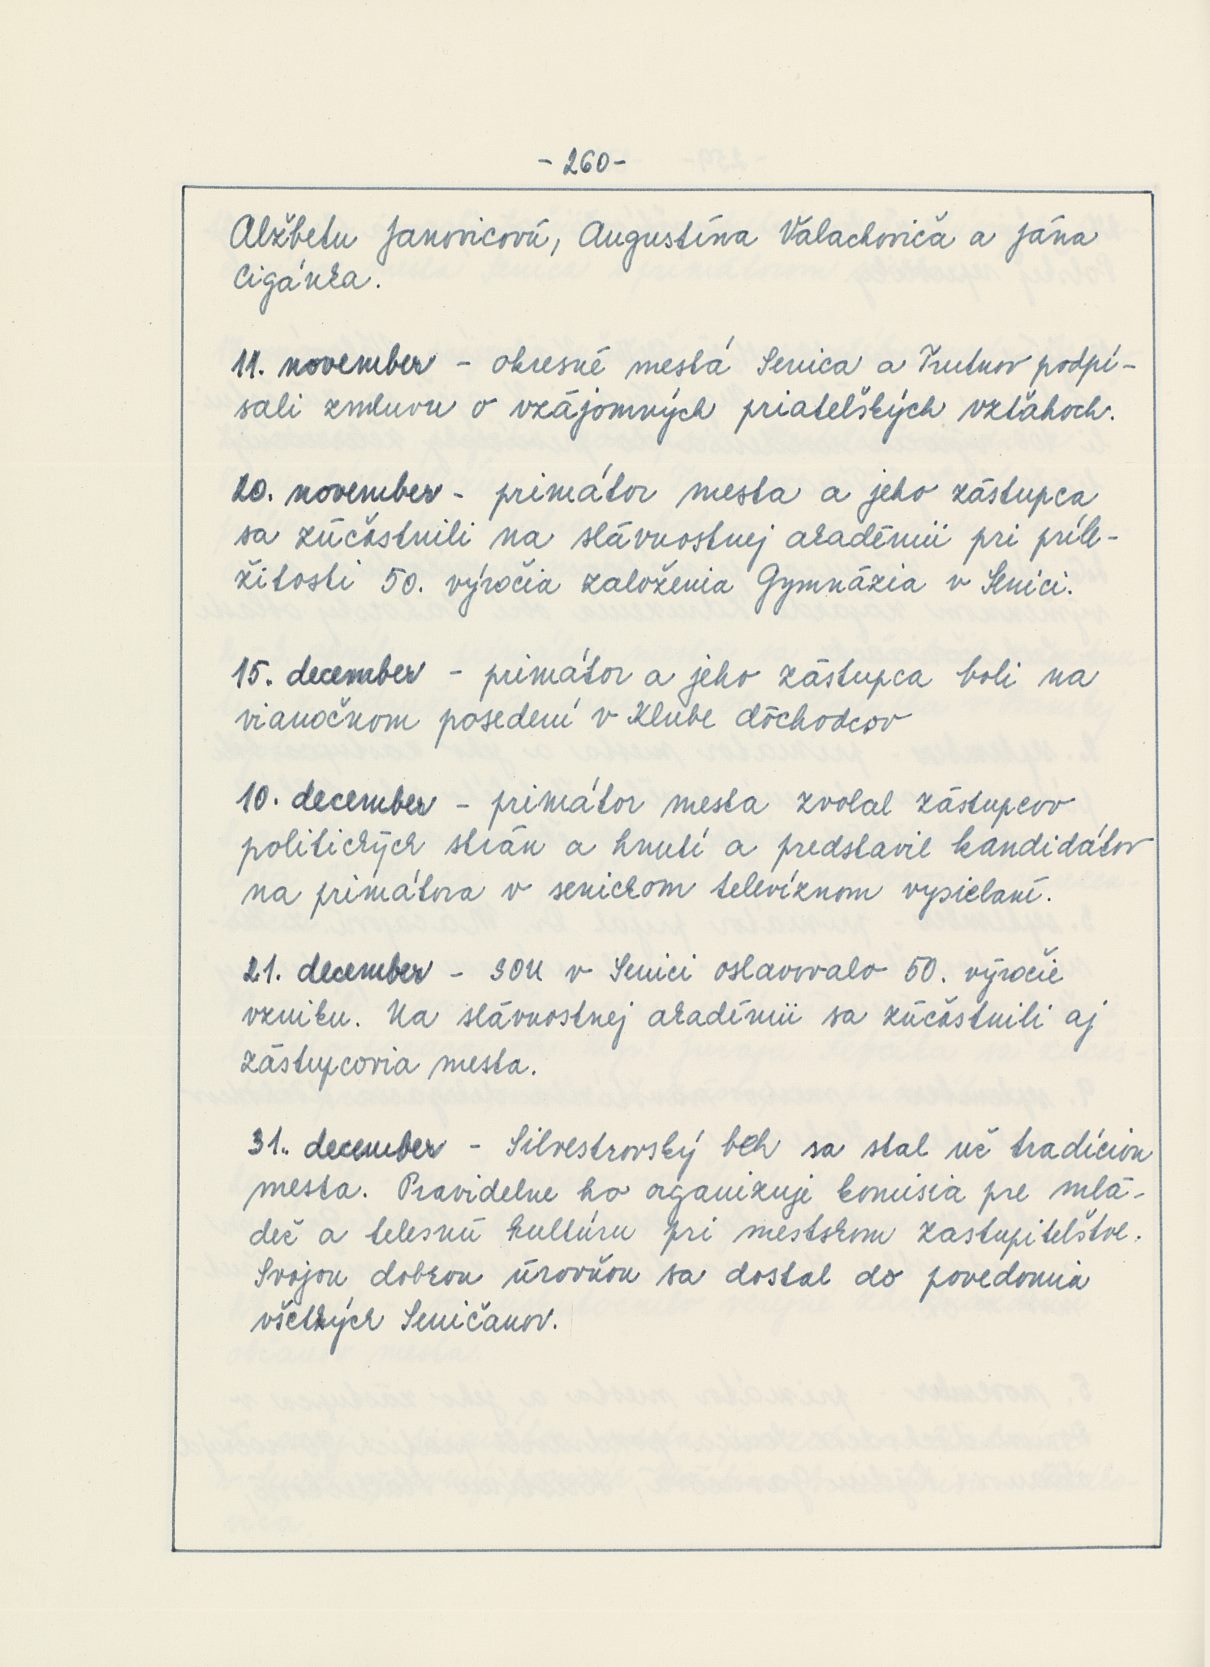 - 260 -
Alžbetu Janovicovú, Augustína Valachoviča a Jána
Cigánka.
11. november - okresné mestá Senica a Trutnov podpí-
sali zmluvu o vzájomných priateľských vzťahoch.
20. november - primátor mesta a jeho zástupca
sa zúčastnili na slávnostnej akadémii pri príle-
žitosti 50. výročia založenia Gymnázia v Senici.
15. december - primátor a jeho zástupca boli na
vianočnom posedení v Klube dôchodcov
10. december - primátor mesta zvolal zástupcov
politických strán a hnutí a predstavil kandidátov
na primátora v senickom televíznom vysielaní.
21. december - SOU v Senici oslavovalo 50. výročie
vzniku. Na slávnostnej akadémii sa zúčastnili aj
zástupcovia mesta.
31. december - Silvestrovský beh sa stal už tradíciou
mesta. Pravidelne ho organizuje komisia pre mlá-
dež a telesnú kultúru pri mestskom zastupiteľstve.
Svojou dobrou úrovňou sa dostal do povedomia
všetkých Seničanov.